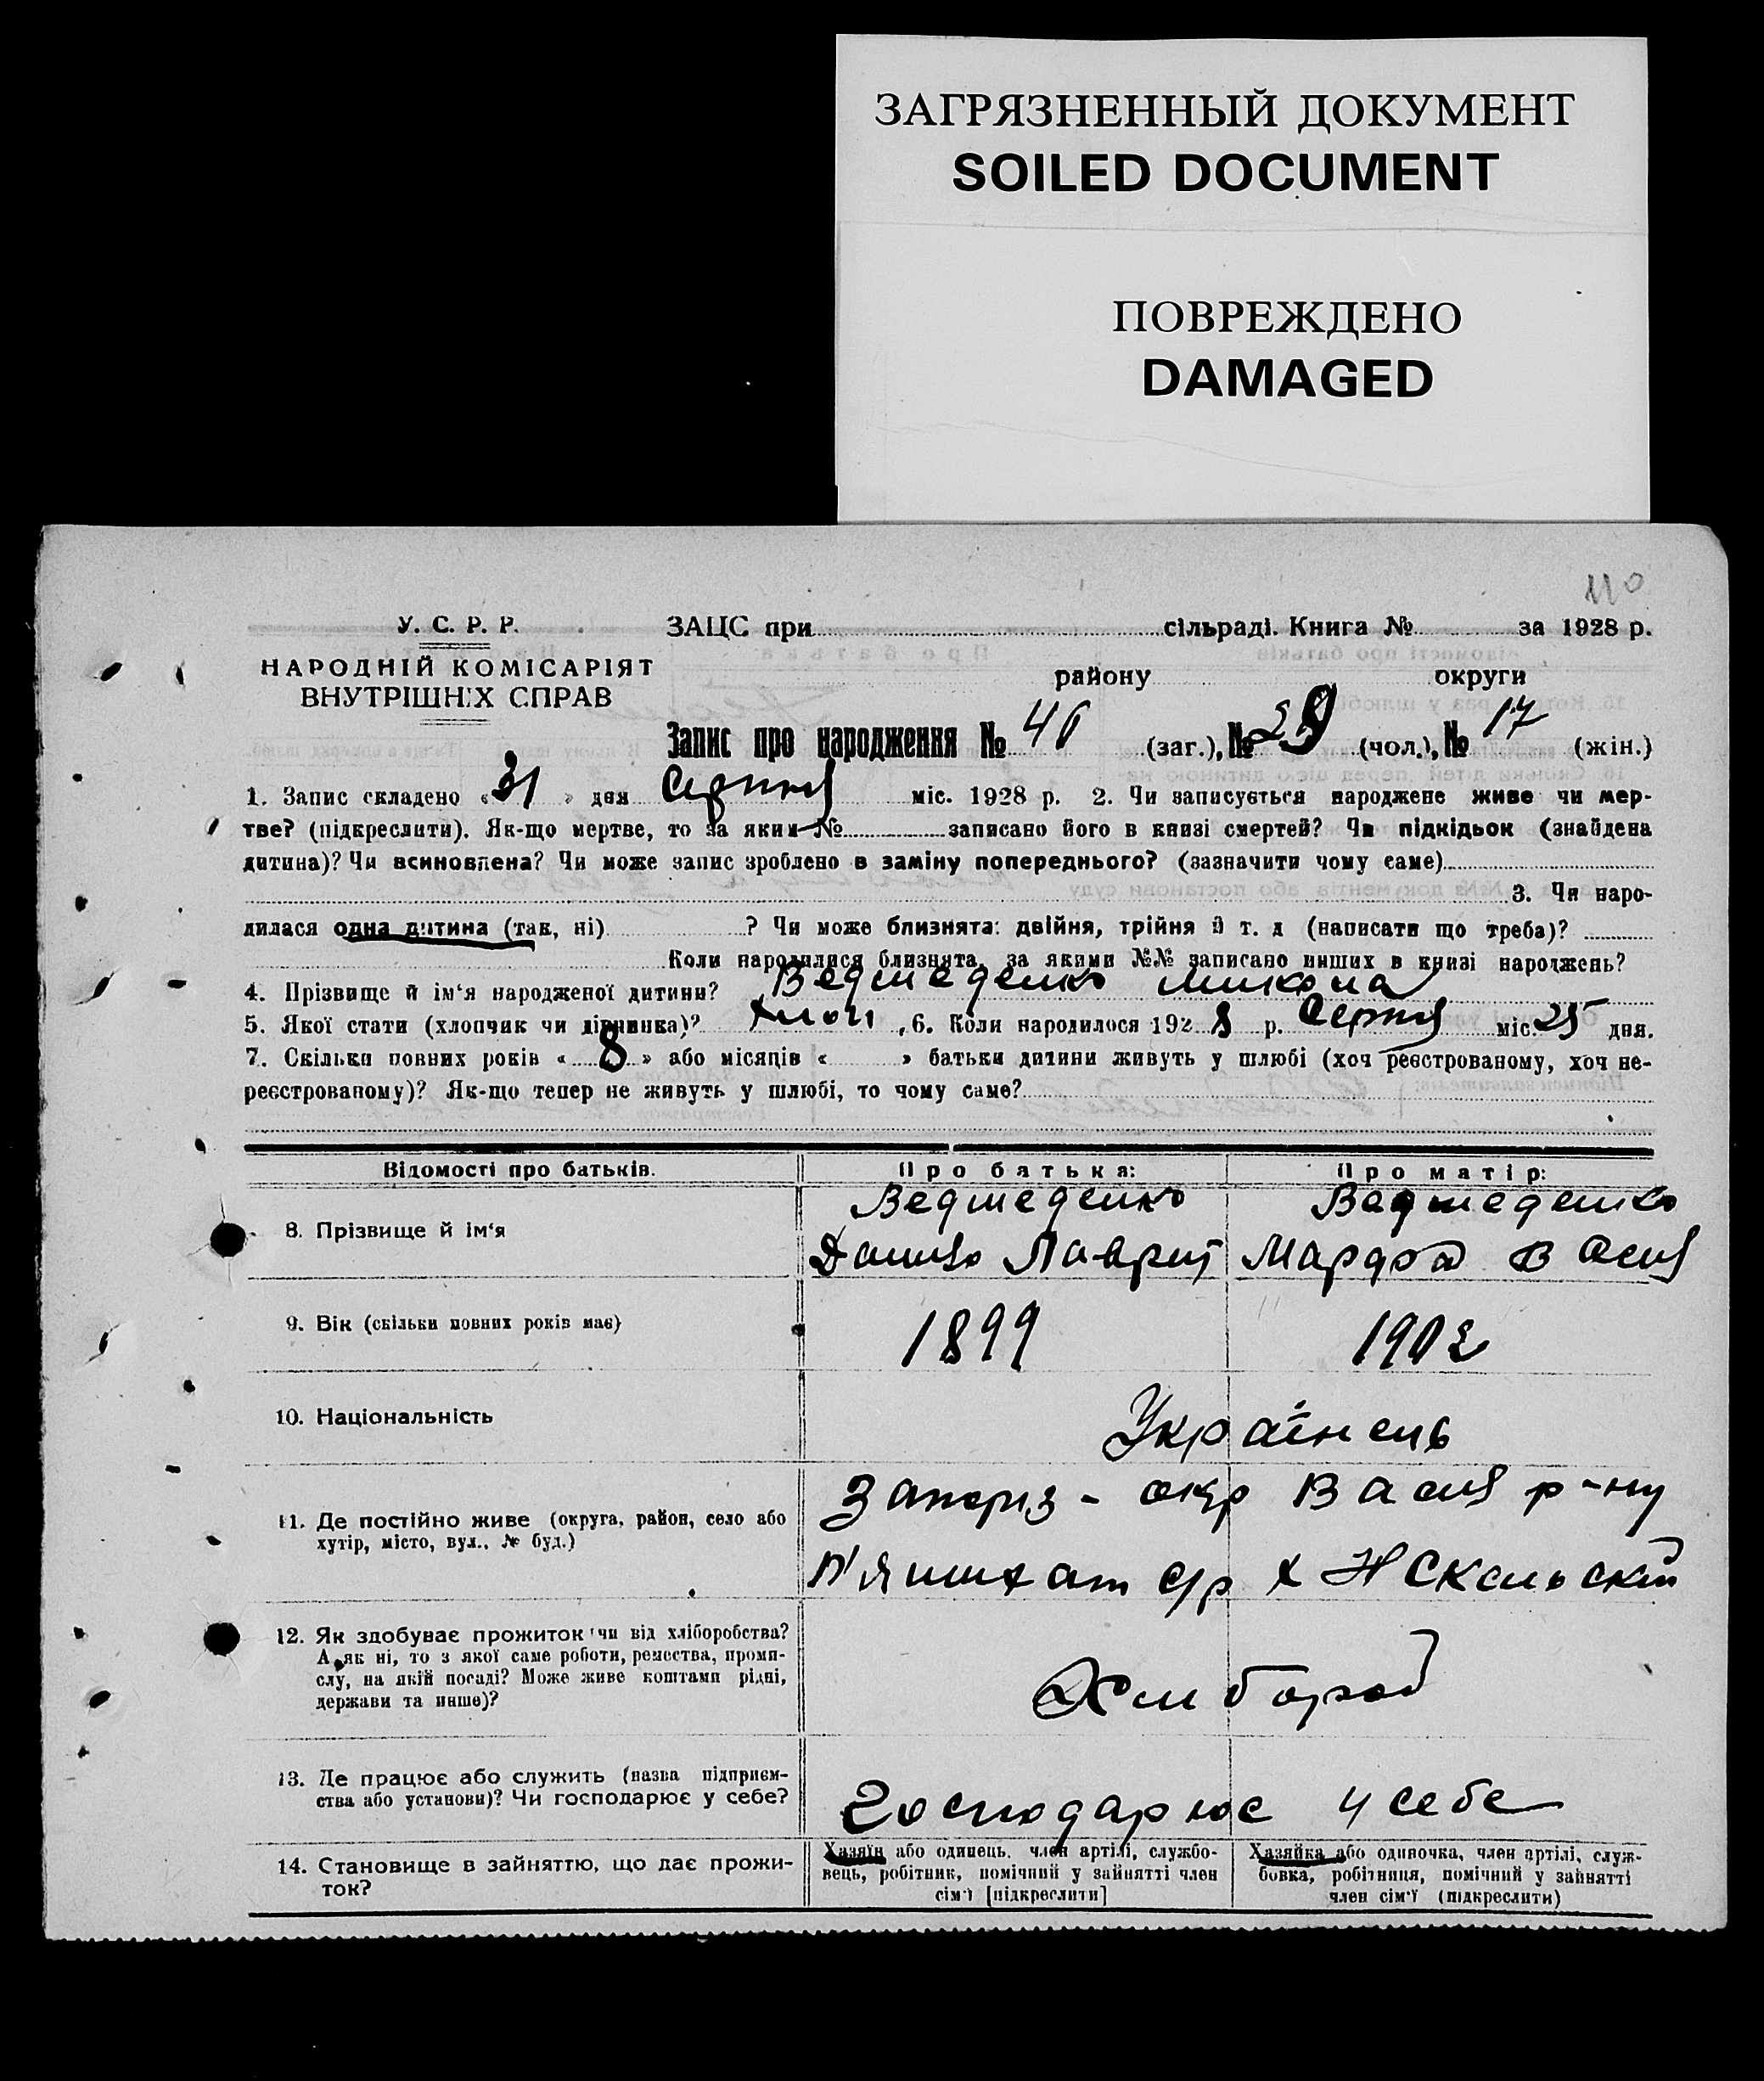 ЗАГРЯЗНЕННЫЙ ДОКУМЕНТ
SOILED DOCUMENT
ПОВРЕЖДЕНО
DAMAGED
110
У. С. Р. Р.
НАРОДНІЙ КОМІСАРІЯТ
ВНУТРІШНІХ СПРАВ
ЗАЦС при сільраді. Книга № за 1928 р.
району округи
Запис про народження № 46 (заг.), № 29 (чол.), № 17 (жін.)
1. Запис складено «31» дня Серпня міс. 1928 р. 2. Чи записується народжене живе чи мер-
тве? (підкреслити). Як-що мертве, то за яким № записано його в книзі смертей? Чи підкідьок (знайдена
дитина)? Чи всиновлена? Чи може запис зроблено в заміну попереднього? (зазначити чому саме)
3. Чи наро-
дилася одна дитина (так, ні) ? Чи може близнята: двійня, трійня й т. д (написати що треба)?
Коли народилися близнята, за якими №№ записано инших в книзі народжень?
4. Прізвище й ім'я народженої дитини? Ведмеденко Микола
5. Якої стати (хлопчик чи дівчинка)? Хлоп , 6. Коли народилося 1928 р. Серпня міс. 25 дня.
7. Скільки повних років «8» або місяців « » батьки дитини живуть у шлюбі (хоч реєстрованому, хоч не-
реєстрованому)? Як-що тепер не живуть у шлюбі, то чому саме?
Відомості про батьків. Про батька: Про матір:
8. Прізвище й ім'я Ведмеденко Ведмеденко
Данило Лаврит Марфа Васил
9. Вік (скільки повних років має) 1899 1902
10. Національність Українець
11. Де постійно живе (округа, район, село або
хутір, місто, вул., № буд.)
Запоріз - окр Васил р-ну
П'ятихат с/р х НСкельский
12. Як здобуває прожиток (чи від хліборобства?
А як ні, то з якої саме роботи, ремества, проми-
слу, на якій посаді? Може живе коштами рідні,
держави та инше)?
Хлибороб
13. Де працює або служить (назва підприєм-
ства або установи)? Чи господарює у себе?
Господарює у себе
14. Становище в зайняттю, що дає прожи-
ток?
Хазяїн або одинець, член артілі, службо-
вець, робітник, помічний у зайнятті член
сім'ї [підкреслити]
Хазяйка або одиночка, член артілі, служ-
бовка, робітниця, помічний у зайнятті
член сім'ї (підкреслити)